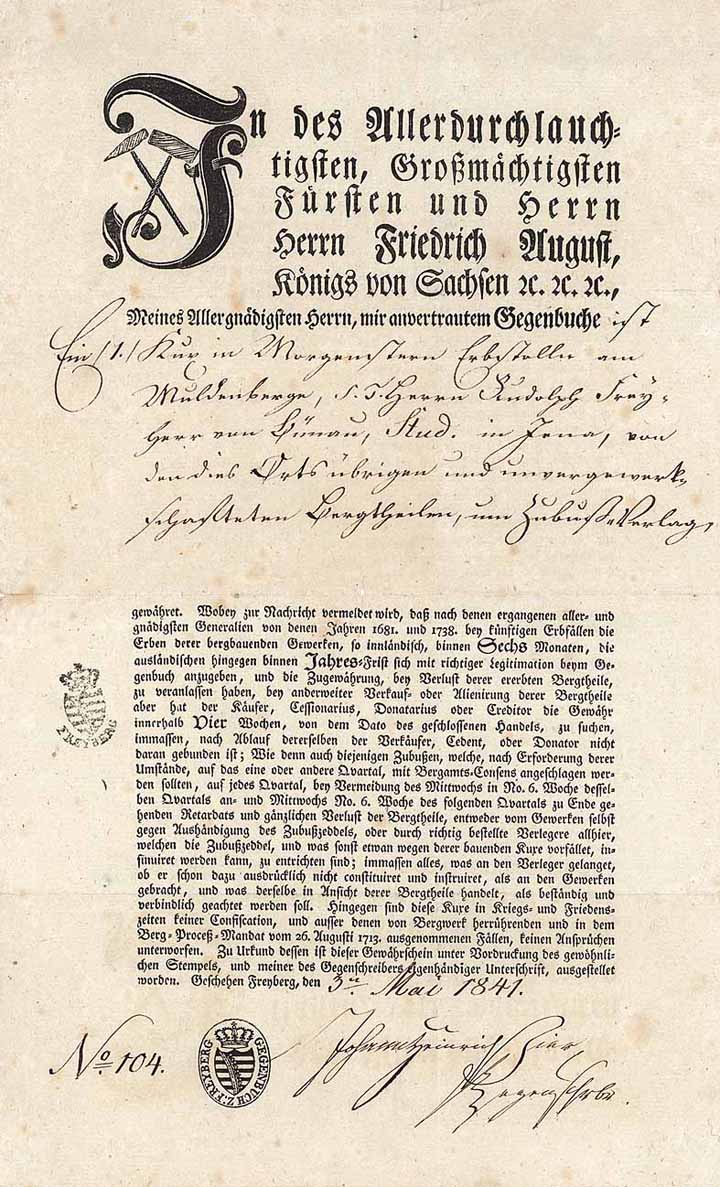 In des Allerdurchlauch-
tigsten, Großmächtigsten
Fürsten und Herrn
Herrn Friedrich August,
Königs von Sachsen ꝛc. ꝛc. ꝛc.,
Meines Allergnädigsten Herrn, mir anvertrautem Gegenbuche ist
Ein /1./ Kux in Morgenstern Erbstolln am
Muldenberge, S. T. Herrn Rudolph Frey-
herr von Bünau, Stud. in Jena, von
den dies Orts übrigen und unvergewerk-
schafteten Bergtheilen, um Zubuß-Verlag,
gewähret. Wobey zur Nachricht vermeldet wird, daß nach denen ergangenen aller- und
gnädigsten Generalien von denen Jahren 1681. und 1738. bey künftigen Erbfällen die
Erben derer bergbauenden Gewerken, so innländisch, binnen Sechs Monaten, die
ausländischen hingegen binnen Jahres-Frist sich mit richtiger Legitimation beym Ge-
genbuch anzugeben, und die Zugewährung, bey Verlust derer ererbten Bergtheile,
zu veranlassen haben, bey anderweiter Verkauf- oder Alienirung derer Bergtheile
aber hat der Käufer, Cessionarius, Donatarius oder Creditor die Gewähr
innerhalb Vier Wochen, von dem Dato des geschlossenen Handels, zu suchen,
immassen, nach Ablauf dererselben der Verkäufer, Cedent, oder Donator nicht
daran gebunden ist; Wie denn auch diejenigen Zubußen, welche, nach Erforderung derer
Umstände, auf das eine oder andere Qvartal, mit Bergamts-Consens angeschlagen wer-
den sollten, auf jedes Qvartal, bey Vermeidung des Mittwochs in No. 6. Woche dessel-
ben Qvartals an- und Mittwochs No. 6. Woche des folgenden Qvartals zu Ende ge-
henden Retardats und gänzlichen Verlust der Bergtheile, entweder vom Gewerken selbst
gegen Aushändigung des Zubußzeddels, oder durch richtig bestellte Verlegere allhier,
welchen die Zubußzeddel, und was sonst etwan wegen derer bauenden Kuxe vorfället, in-
sinuiret werden kann, zu entrichten sind; immassen alles, was an den Verleger gelanget,
ob er schon dazu ausdrücklich nicht constituiret und instruiret, als an den Gewerken
gebracht, und was derselbe in Ansicht derer Bergtheile handelt, als beständig und
verbindlich geachtet werden soll. Hingegen sind diese Kuxe in Kriegs- und Friedens-
zeiten keiner Confiscation, und ausser denen von Bergwerk herrührenden und in dem
Berg-Proceß-Mandat vom 26. Augusti 1713. ausgenommenen Fällen, keinen Ansprüchen
unterworfen. Zu Urkund dessen ist dieser Gewährschein unter Vordruckung des gewöhnli-
chen Stempels, und meiner des Gegenschreibers eigenhändiger Unterschrift, ausgestellet
worden. Geschehen Freyberg, den 3n Mai 1841.
FREYBERG
No. 104.
GEGENBUCH Z. FREYBERG
Johann Heinrich
Gegenschrbr.